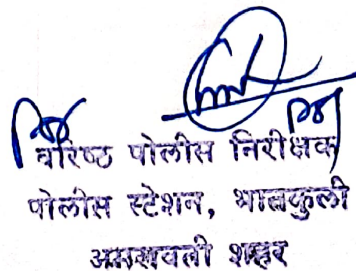 वरिष्ठ पोलीस निरीक्षक
पोलीस स्टेशन, भातकुली
अमरावती शहर